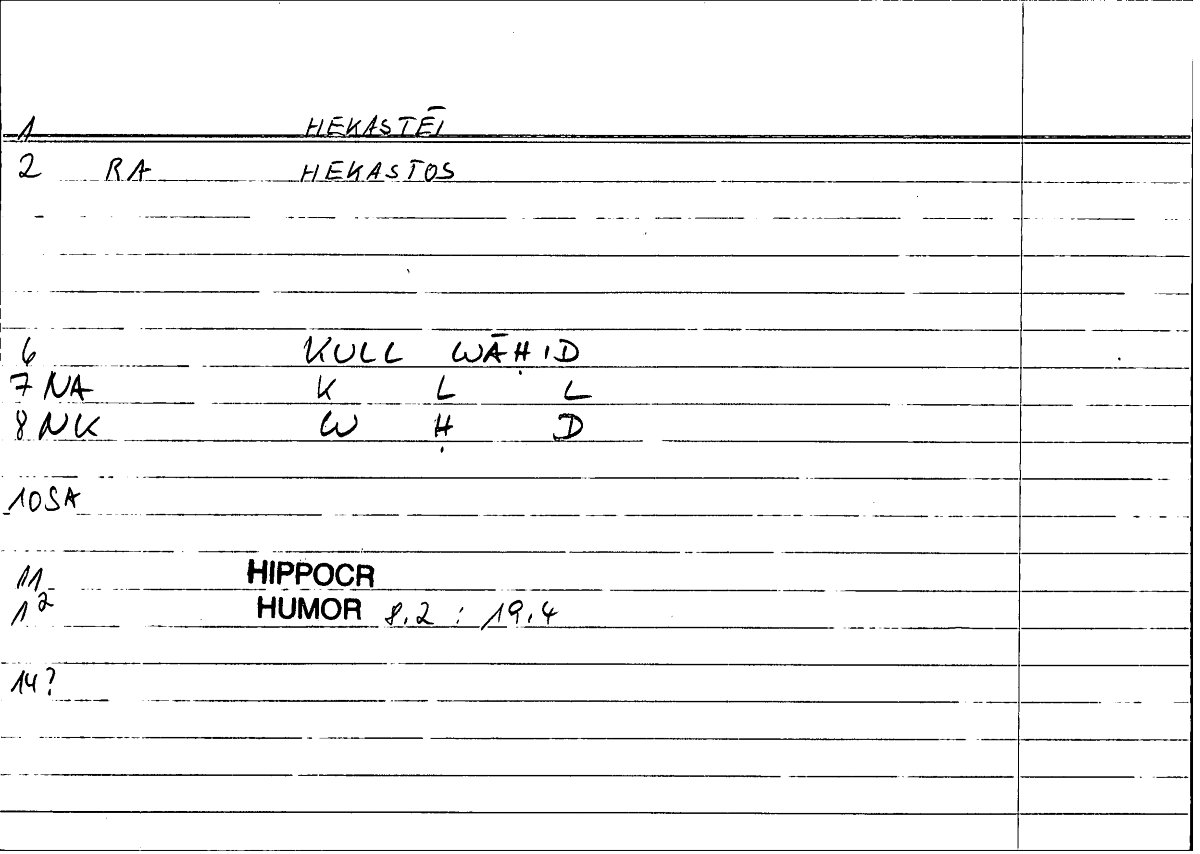 1 HEKASTĒI
2 RA HEKASTOS
6 KULL WĀḤID
7 NA K L L
8 NK W Ḥ D
10 SA
11 HIPPOCR
12 HUMOR 8.2 : 19.4
14?